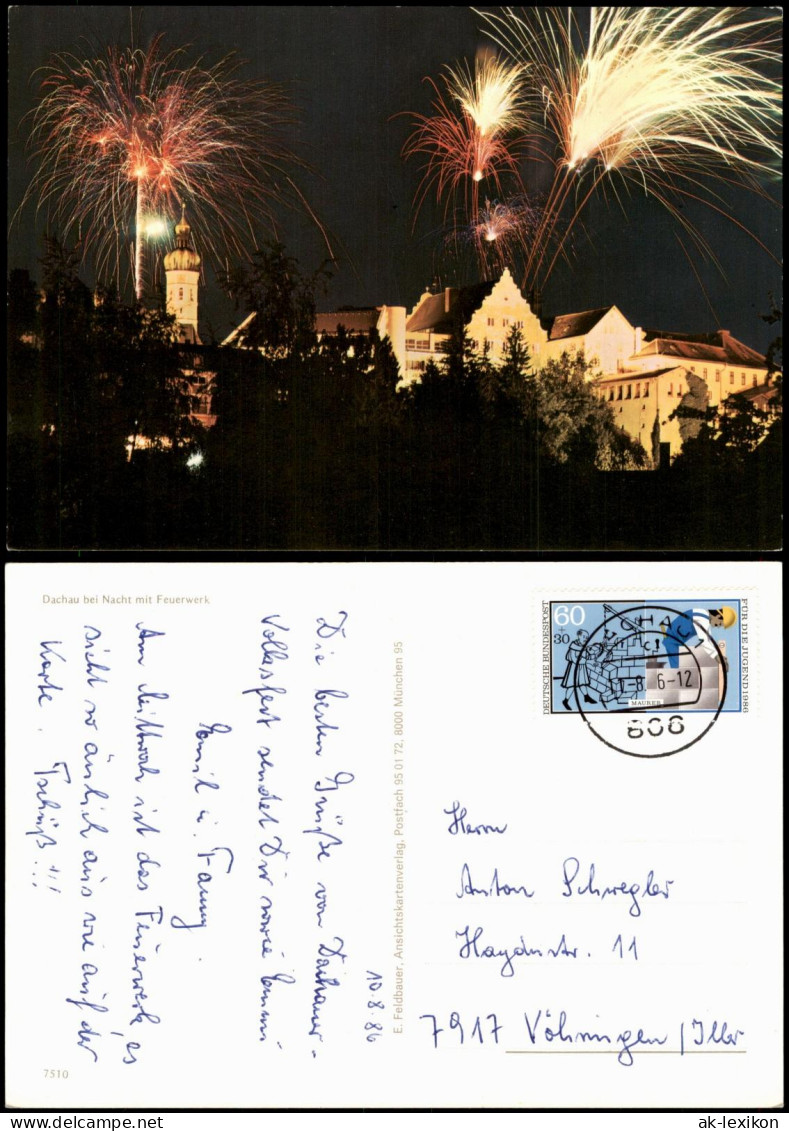 Dachau bei Nacht mit Feuerwerk
10.8.86
Die besten Grüße vom Dachauer-
Volksfest sendet Dir sowie Emmi
Emil u. Fanny.
Am Mittwoch ist das Feuerwerk, es
sieht so änlich aus wie auf der
Karte. Tschüß!!!
7510
E. Feldbauer, Ansichtskartenverlag, Postfach 95 01 72, 8000 München 95
DEUTSCHE BUNDESPOST
60
+
30
MAURER
FÜR DIE JUGEND 1986
DACHAU 1
808
Herrn
Anton Schwegler
Haydnstr. 11
7917 Vöhringen/Iller
ak-ansichtskarten.de
ak-lexikon